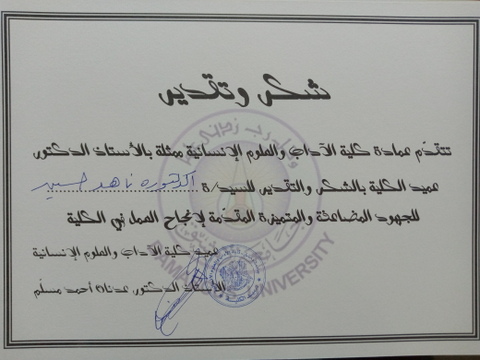 شكر وتقدير
تتقدم عمادة كلية الآداب والعلوم الإنسانية ممثلة بالأستاذ الدكتور
عميد الكلية بالشكر والتقدير للسيد/ة الدكتورة ناهد حسين
للجهود المضاعفة والمتميزة المقدمة لإنجاح العمل في الكلية
عميد كلية الآداب والعلوم الإنسانية
الأستاذ الدكتور عدنان أحمد مسلم
وقل رب زدني
UNIVERSITY